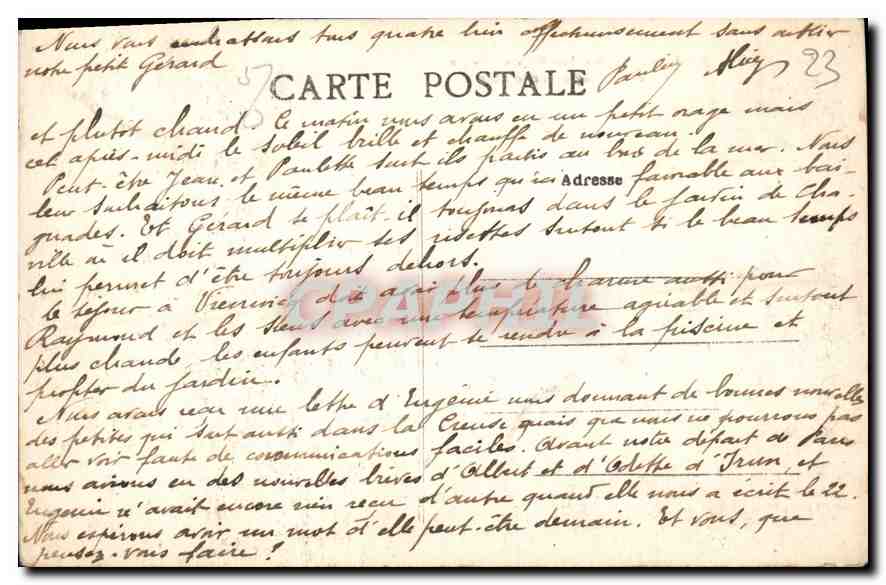 Nous vous embrassons tous quatre bien affectueusement sans oublier
notre petit Gérard
CARTE POSTALE
et plutôt chaud. Ce matin nous avons eu un petit orage mais
cet après-midi le soleil brille et chauffe de nouveau.
Peut-être Jean et Paulette sont ils partis au bord de la mer. Nous
leur souhaitons le même beau temps qu'ici favorable aux bai-
Adresse
gnades. Et Gérard se plaît-il toujours dans le jardin de Cha-
ville où il doit multiplier ses risettes surtout si le beau temps
lui permet d'être toujours dehors.
le séjour à doit avoir plus de charme aussi pour
CPAPHIL
Raymond et les siens avec une température agréable et surtout
plus chaude, les enfants peuvent se rendre à la piscine et
profiter du jardin.
Nous avons reçu une lettre d'Eugénie nous donnant de bonnes nouvelles
des petites qui sont aussi dans la Creuse mais que nous ne pourrons pas
aller voir faute de communications faciles. Avant notre départ de Paris
nous avions eu des nouvelles brèves d'Albert et d'Odette d'Irun, et
Eugénie n'avait encore rien reçu d'autre quand elle nous a écrit le 22.
Nous espérons avoir un mot d'elle peut-être demain. Et vous, que
pensez-vous faire?
23